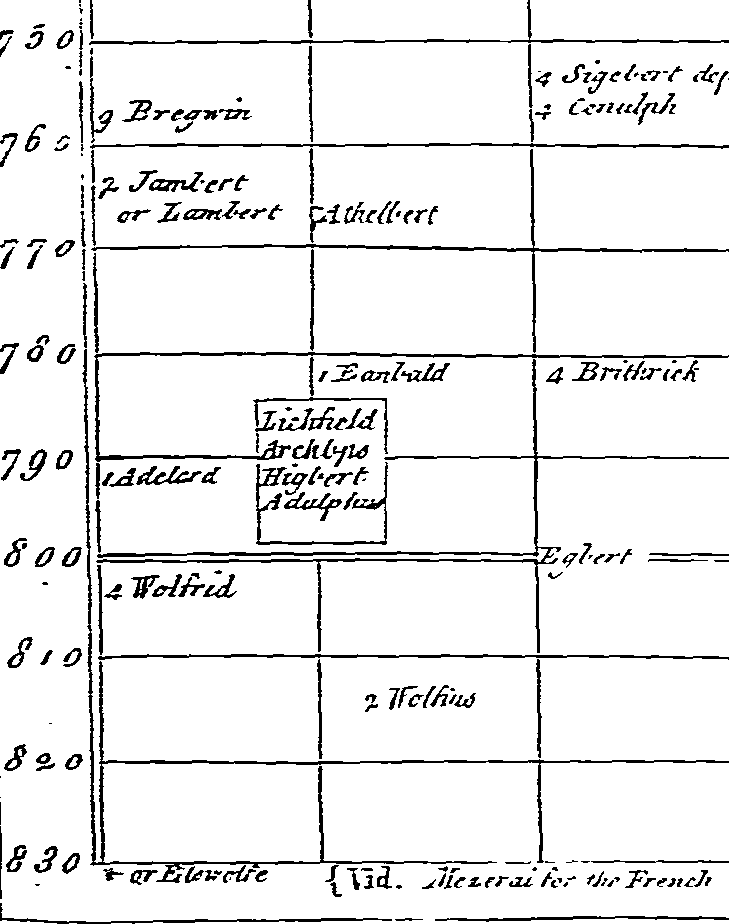 750
4 Sigebert dep
4 Cenulph
9 Bregwin
760
2 Jambert
or Lambert
Athelbert
770
780
1 Eanbald
4 Brithrick
Lichfield
Archbps
Higbert
Adulphus
790
1 Adelard
800
Egbert
4 Wolfrid
810
2 Wolfius
820
830
or
{Vid. Mezerai for the French